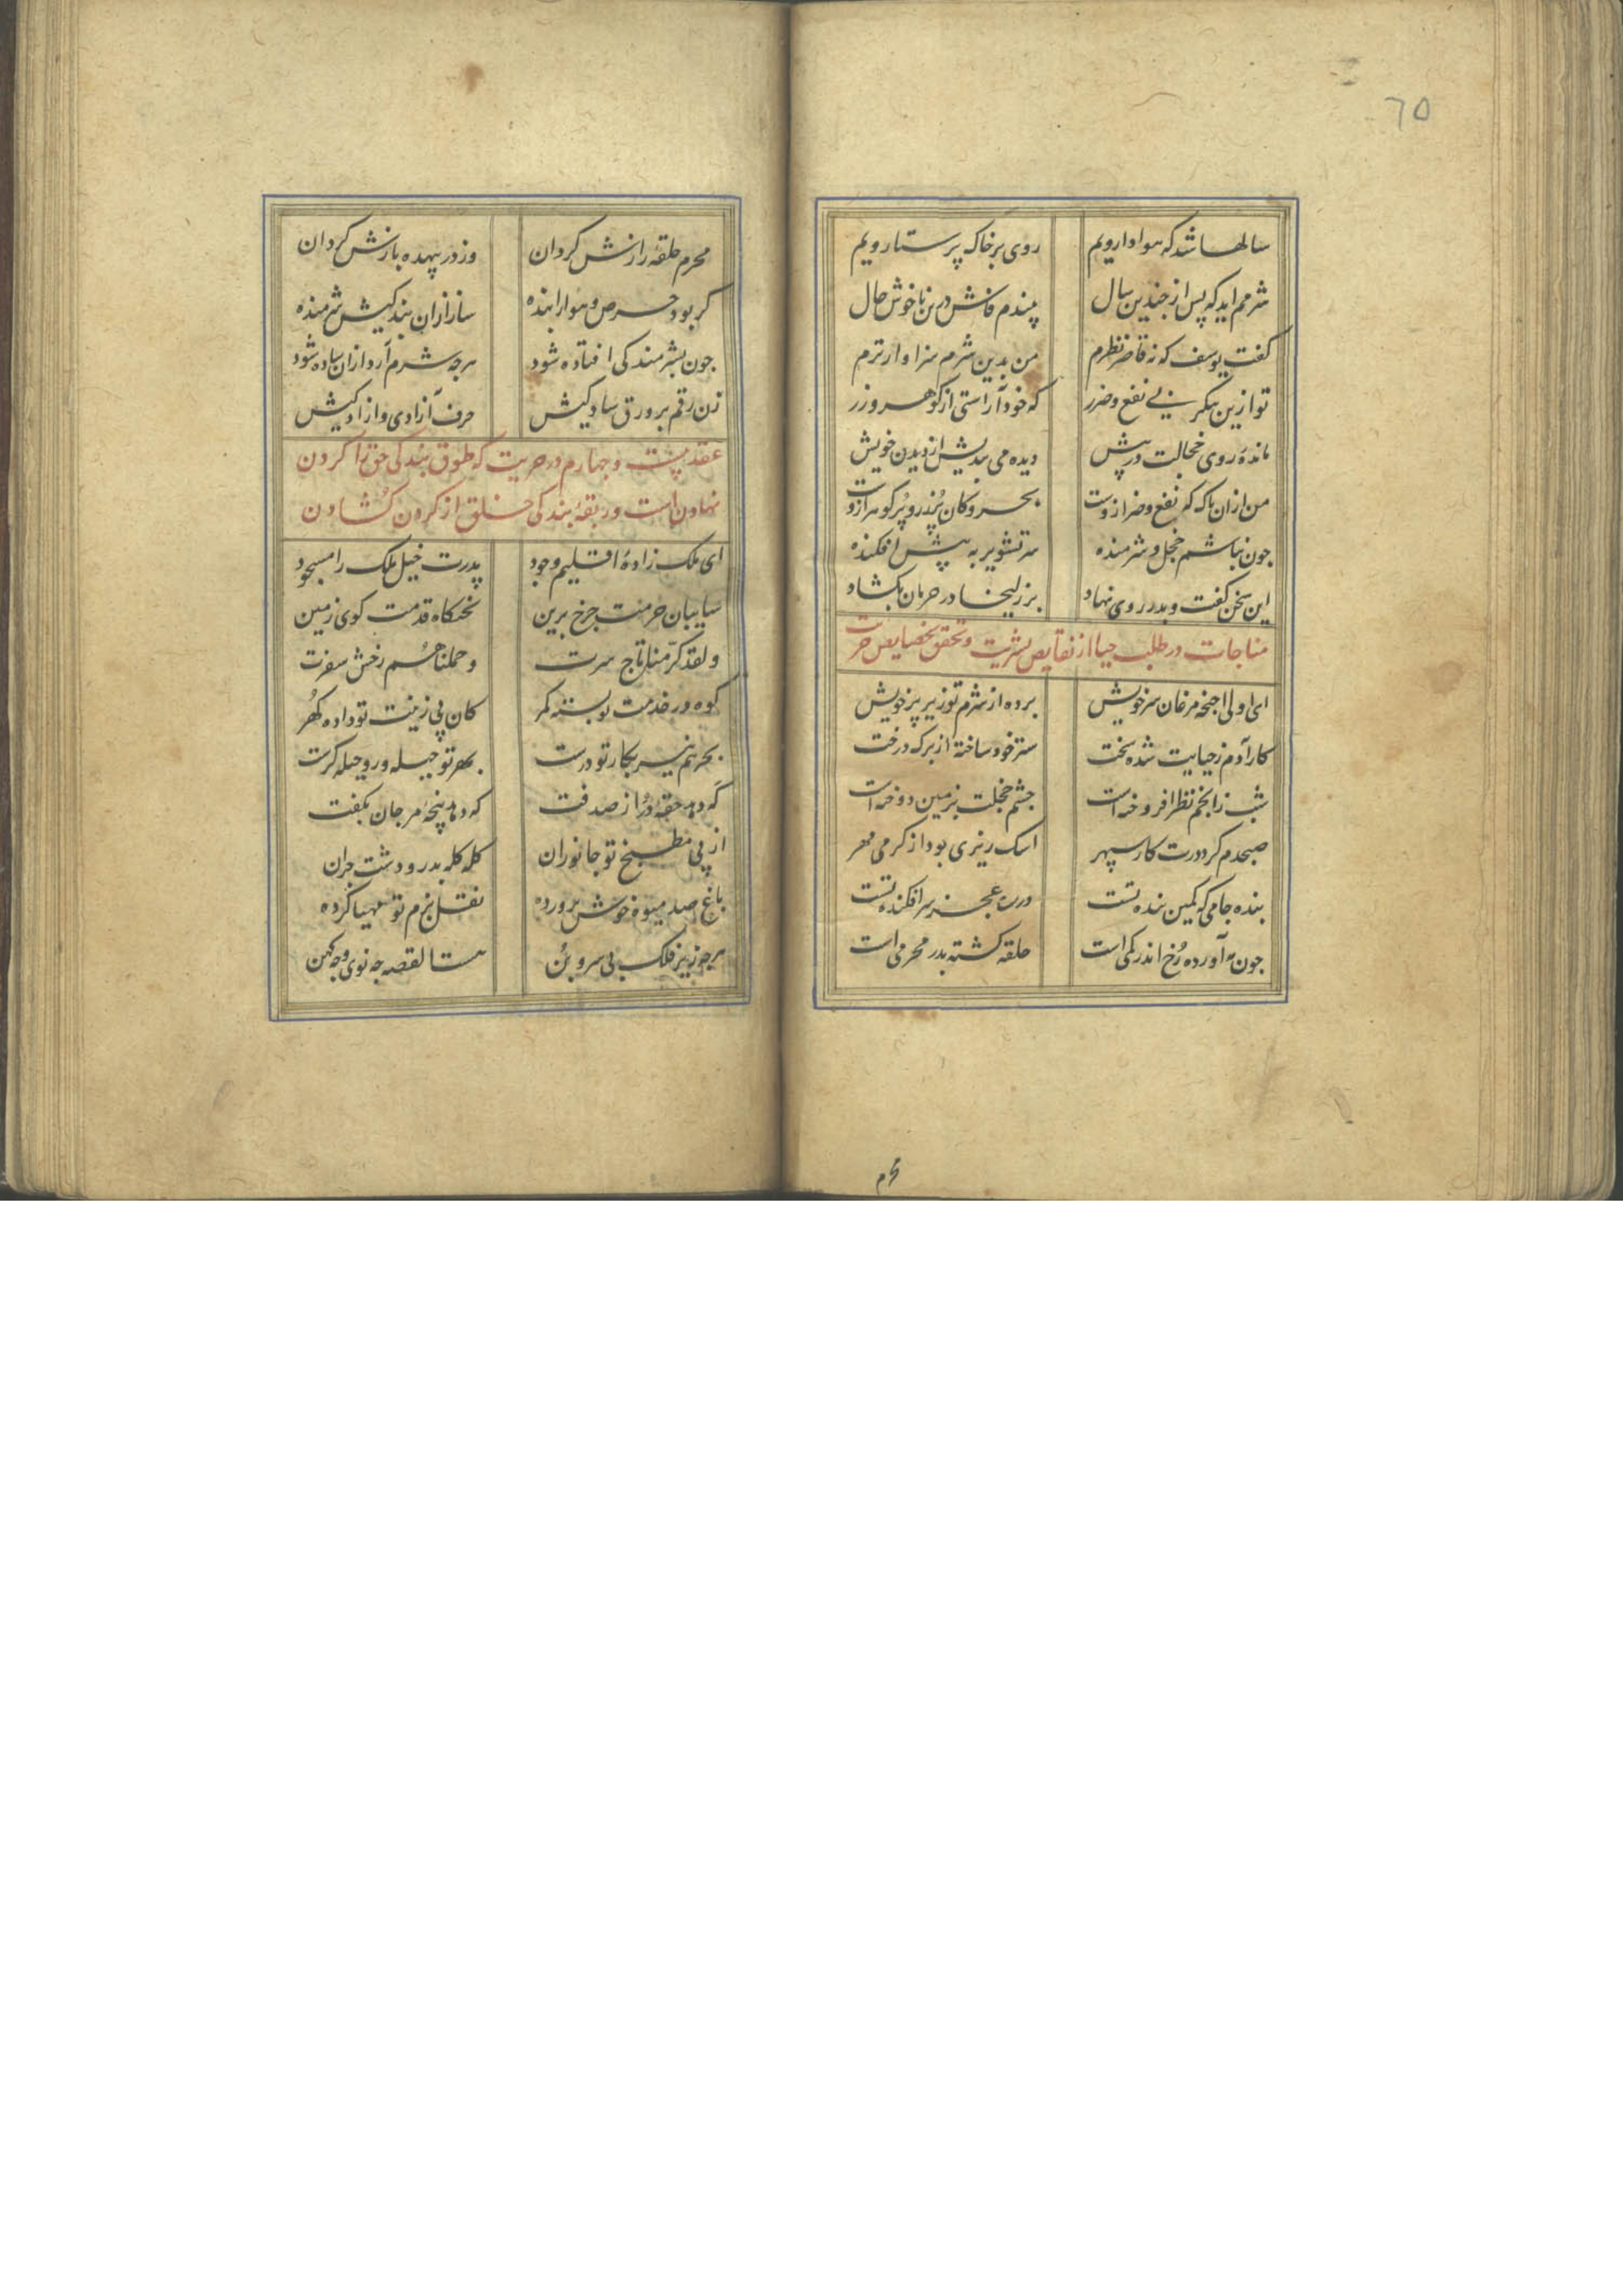 ٦٥
سالها شد که هوادار ویم روی بر خاک پرستار ویم
شرمم اید که پس از چندین سال بیندم فاش درین ناخوش حال
کفت یوسف که نه قاصر نظرم من بدین شرم سزاوارترم
تو ازین پیکر بی نفع و ضرر که خود آراستی از کوهر و زر
مانده روی خجالت در پیش دیده می بندیش از دیدن خویش
من ازان پاک که نفع و ضر ازوست بحر و کان پر زر و پر کوهر ازوست
جون نباشم خجل و شرمنده سر تشویر به پیش افکنده
این سخن کفت و بدر روی نهاد بر زلیخا در حرمان بکشاد
مناجات در طلب حیا از نقایص بشریت و تحقق بخصایص حریت
ای اولی اجنحه مرغان سر خویش برده از شرم تو زیر پر خویش
کار آدم ز حیایت شده سخت ستر خود ساخته از برک درخت
شب ز انجم نظر افروخته است جشم خجلت بزمین دوخته است
صبحدم کرد درت کار سپهر اشک ریزی بود از کرمی مهر
بنده جامی که کمین بنده تست در ره عجز سرافکنده تست
جون مه آورده رخ اندر کمی است حلقه کشته بدر محرمی است
محرم
محرم حلقه رازش کردان وز در بیهده بازش کردان
کر بود حرص و هوا را بنده ساز ازان بندکیش شرمنده
جون بشرمندکی افتاده شود هرجه شرم آرد ازان ساده شود
زن رقم بر ورق سادکیش حرف آزادی و ازادکیش
عقد بیست و جهارم در حریت که طوق بندکی حق را کردن
نهادن است و ربقه بندکی خلق از کردن کشادن
ای ملک زاده اقلیم وجود پدرت خیل ملک را مسجود
سایبان حرمت جرخ برین تختکاه قدمت کوی زمین
ولقد کرمنا تاج سرت و حملناهم رخش سفرت
کوه در خدمت تو بسته کمر کان پی زینت تو داده کهر
بحر هم نیز بکار تو درست بهر تو حیله ور و حیله کرست
که دهد حقه در از صدفت که دهد پنجه مرجان بکفت
از پی مطبخ تو جانوران کله کله بدر و دشت جران
باغ صد میوه خوش پرورده نقل بزم تو مهیا کرده
هرجه زیر فلک بی سر و بن هست القصه جه نوی و جه کهن